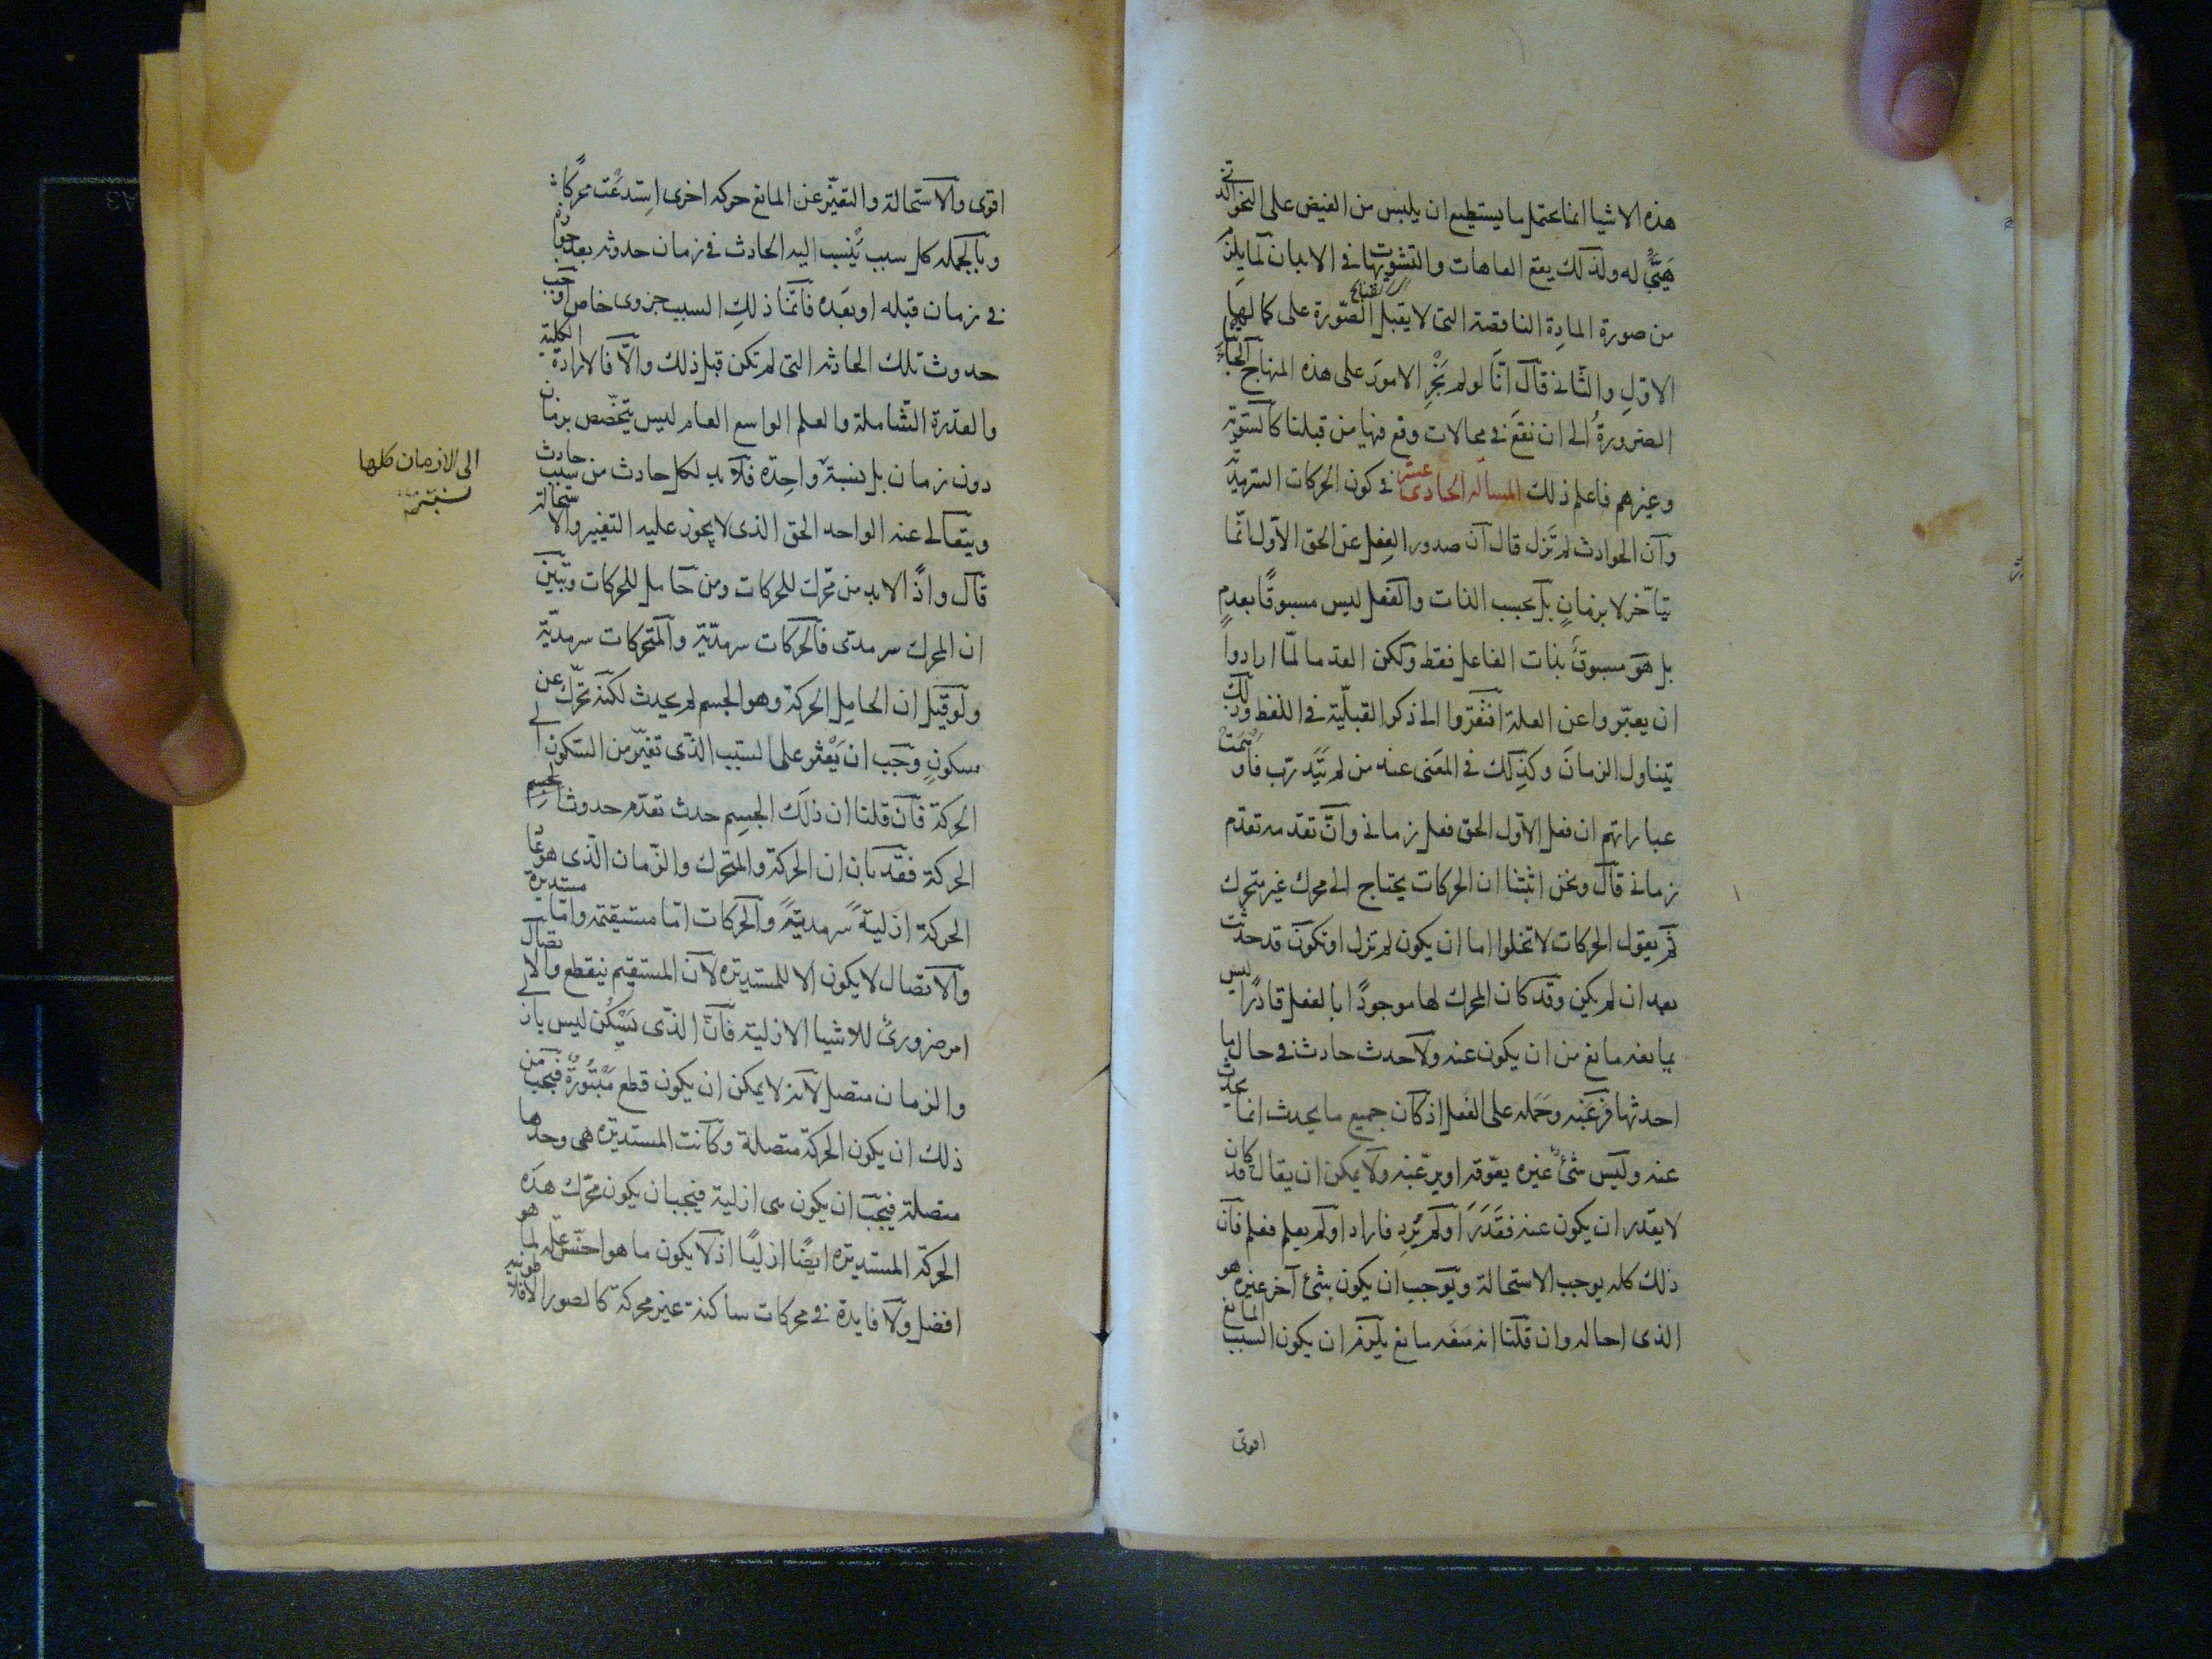 هذه الاشيا انما يحتمل ما يستطيع ان يلبس من الفيض على النحو الذى
هيّئ له ولذلك يقع العاهات والتشويهات فى الابدان لما يلزم
من صورة المادة الناقصة التى لا يقبل الصّورة على كمالها
الاوّل والثّانى قال انّا لو لم نجر الامور على هذه المنهاج الجأتنا
الضرورةُ الى ان نقع فى محالات وقع فيها من قبلنا كالثنوية
وغيرهم فاعلم ذلك المسألة الحادى عشر فى كون الحركات السّرمديّة
وان الحوادث لم تزل قال ان صدور الفعل عن الحق الاوّل انّما
يتأخّر لا بزمانٍ بل بحسب الذات والفعل ليس مسبوقًا بعدمٍ
بل هو مسبوقٌ بذات الفاعل فقط ولكن القدما لمّا ارادوا
ان يعبّروا عن العلة افتقروا الى ذكر القبليّة فى اللفظ وذلك
يتناول الزمان وكذلك فى المعنى عند من لم يتدرّب فاوهمت
عباراتهم ان فعل الاوّل الحق فعل زمانى وانّ تقدمه تقدّم
زمانى قال ونحن اثبتنا ان الحركات يحتاج الى محرك غير متحرك
ثم يقول الحركات لا تخلوا اما ان يكون لم تزل او تكون قد حدثت
بعد ان لم يكن وقد كان المحرك لها موجودًا بالفعل قادرًا ليس
يمانعه مانع من ان يكون عنه ولا حدث حادث فى حال ما
احدثها فرغّبه وحمله على الفعل اذ كان جميع ما يحدث انما يحدث
عنه وليس شئٌ غيره يعوّقه او يرغّبه ولا يمكن ان يقال قد كان
لا يقدر ان يكون عنه فقدر او لم يُرد فاراد او لم يعلم فعلم فان
ذلك كله يوجب الاستحالة ويوجب ان يكون شئ آخر غيره هو
الذى احاله وان قلنا انه منعه مانع يلزم ان يكون السبب المانع
اقوى
اقوى والاستحالة والتغيّر عن المانع حركه اخرى استدعت محركًا
وبالجمله كل سبب يُنسب اليه الحادث فى زمان حدوثه بعد جوازه
فى زمان قبله او بعده فانّما ذلك السبب جزوى خاص اوجب
حدوث تلك الحادثه التى لم تكن قبل ذلك والّا فالارادة الكلية
والقدرة الشّاملة والعلم الواسع العام ليس يتخصّص بزمان
دون زمان بل نسبة واحدة فلا بد لكل حادث من سبب حادث
الى الازمان كلها نسبة
ويتعالى عنه الواحد الحق الذى لا يجوز عليه التغيير والاستحالة
قال واذًا لا بد من محرك للحركات ومن حامل للحركات وتبيّن
ان المحرك سرمدى فالحركات سرمديّة والمتحركات سرمديّة
ولو قيل ان الحامل الحركة وهو الجسم لم يحدث لكنّه تحرّك عن
سكونٍ وجب ان يعثر على السّبب الذى تغيّر من السّكون الى
الحركة فان قلنا ان ذلك الجسم حدث تقدّم حدوث الجسم
الحركة فقد بان ان الحركة والمتحرك والزّمان الذى هو عا
الحركة ازليةً سرمديّةً والحركات امّا مستقيمة وامّا مستديرة
والاتصال لا يكون الا للمستديره لان المستقيم ينقطع والاتصال
امر ضرورىّ للاشيا الازلية فانّ الذى يسكن ليس بازلى
والزمان متصل لانه لا يمكن ان يكون قطع مبتورة فيجب من
ذلك ان يكون الحركة متصلة وكانت المستديره هى وحدها
متصلة فيجب ان يكون هى ازلية فيجب ان يكون محرّك هذه
الحركة المستديره ايضًا ازليًا اذ لا يكون ما هو اخسّ علة لما هو
افضل ولا فايدة فى محركات ساكنة غير محركة كالصور الافلاطونية